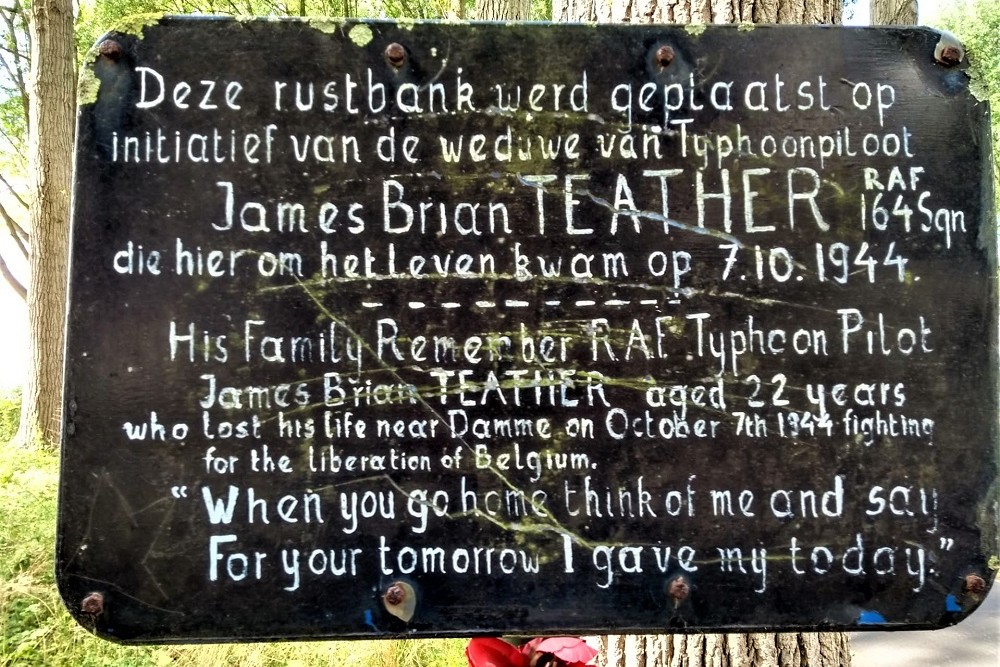 Deze rustbank werd geplaatst op
initiatief van de weduwe van Typhoonpiloot
James Brian TEATHER RAF 164 Sqn
die hier om het leven kwam op 7.10.1944.
- - - - - - - - -
His Family Remember RAF. Typhoon Pilot
James Brian TEATHER aged 22 years
who lost his life near Damme on October 7th 1944 fighting
for the liberation of Belgium.
“When you go home think of me and say
For your tomorrow I gave my today.”